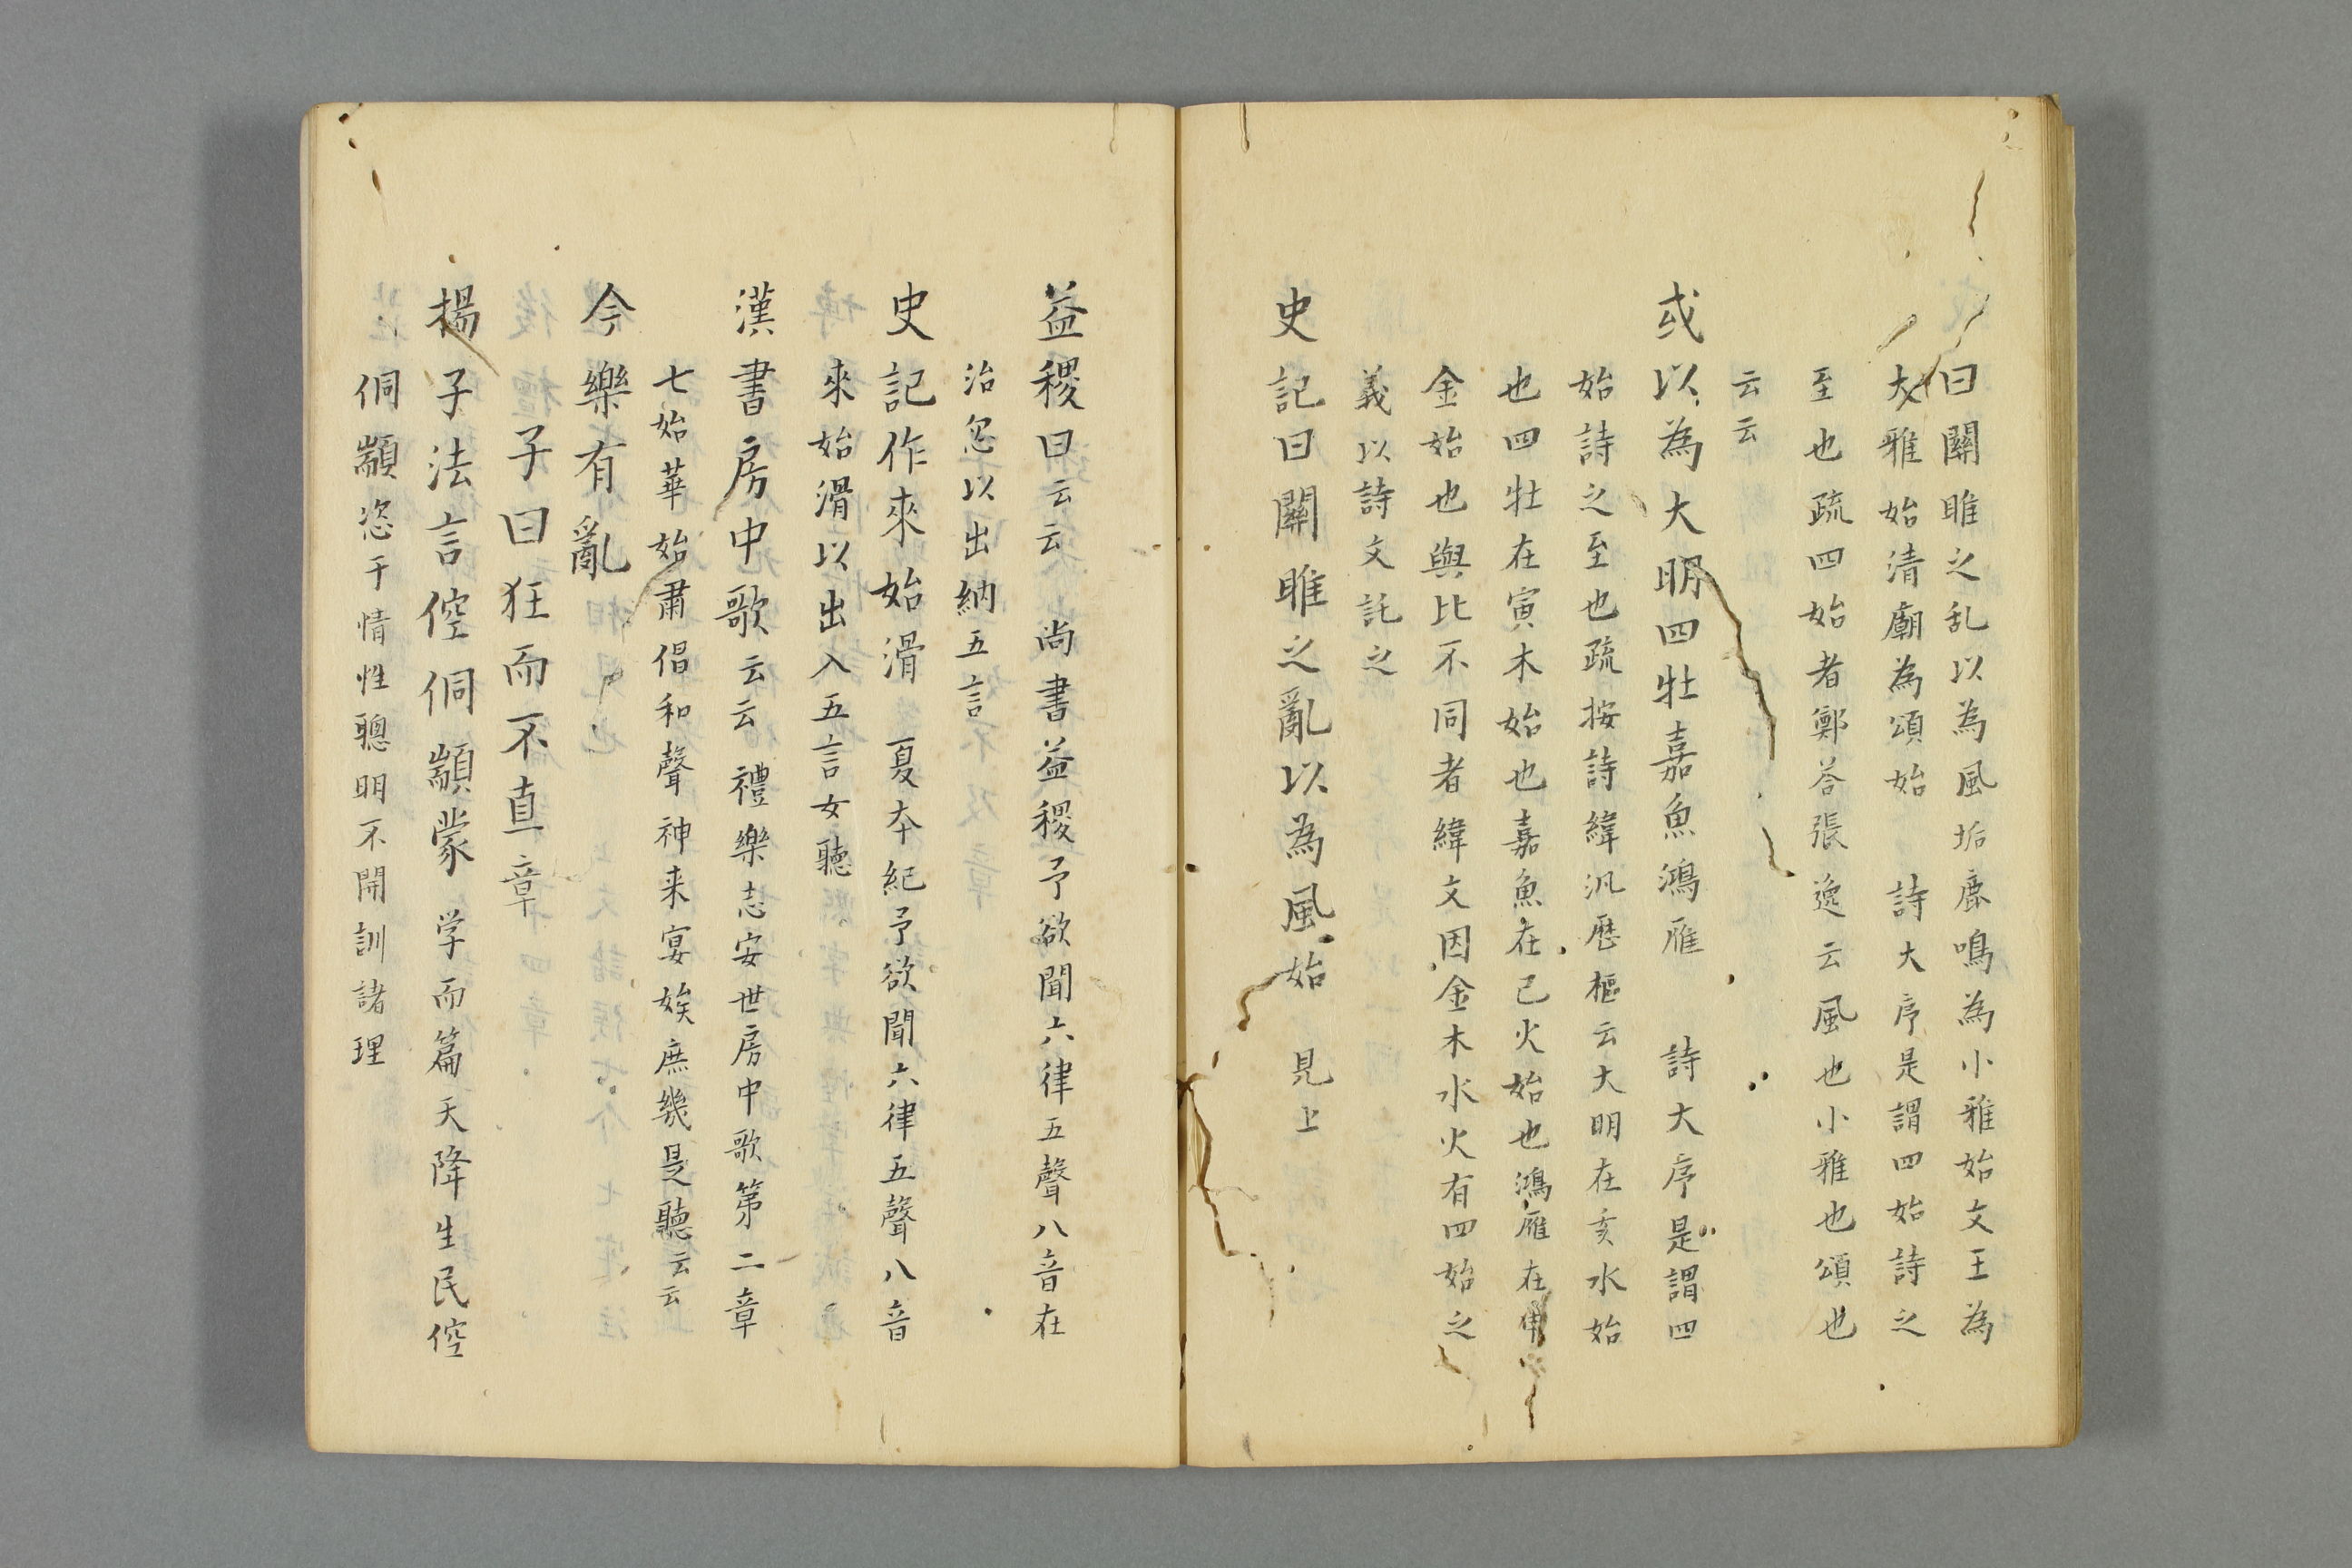 曰關雎之乱以為風垢鹿鳴為小雅始文王為
大雅始清廟為頌始 詩大序是謂四始詩之
至也疏四始者鄭荅張逸云風也小雅也頌也
云云
或以為大明四牡嘉魚鴻雁 詩大序是謂四
始詩之至也疏按詩緯汎歷樞云大明在亥水始
也四牡在寅木始也嘉魚在已火始也鴻雁在申
金始也與比不同者緯文因金木水火有四始之
義以詩文託之
史記曰關雎之亂以為風始 見上
益稷曰云云 尚書益稷予欲聞六律五聲八音在
治忽以出納五言
史記作來始滑 夏本紀予欲聞六律五聲八音
來始滑以出入五言女聽
漢書房中歌云云 禮樂志安世房中歌第二章
七始華始肅倡和聲神来宴娭庶幾是聽云云
今樂有亂
子曰狂而不直章
揚子法言倥侗顓蒙 学而篇天降生民倥
侗顓恣于情性聰明不開訓諸理